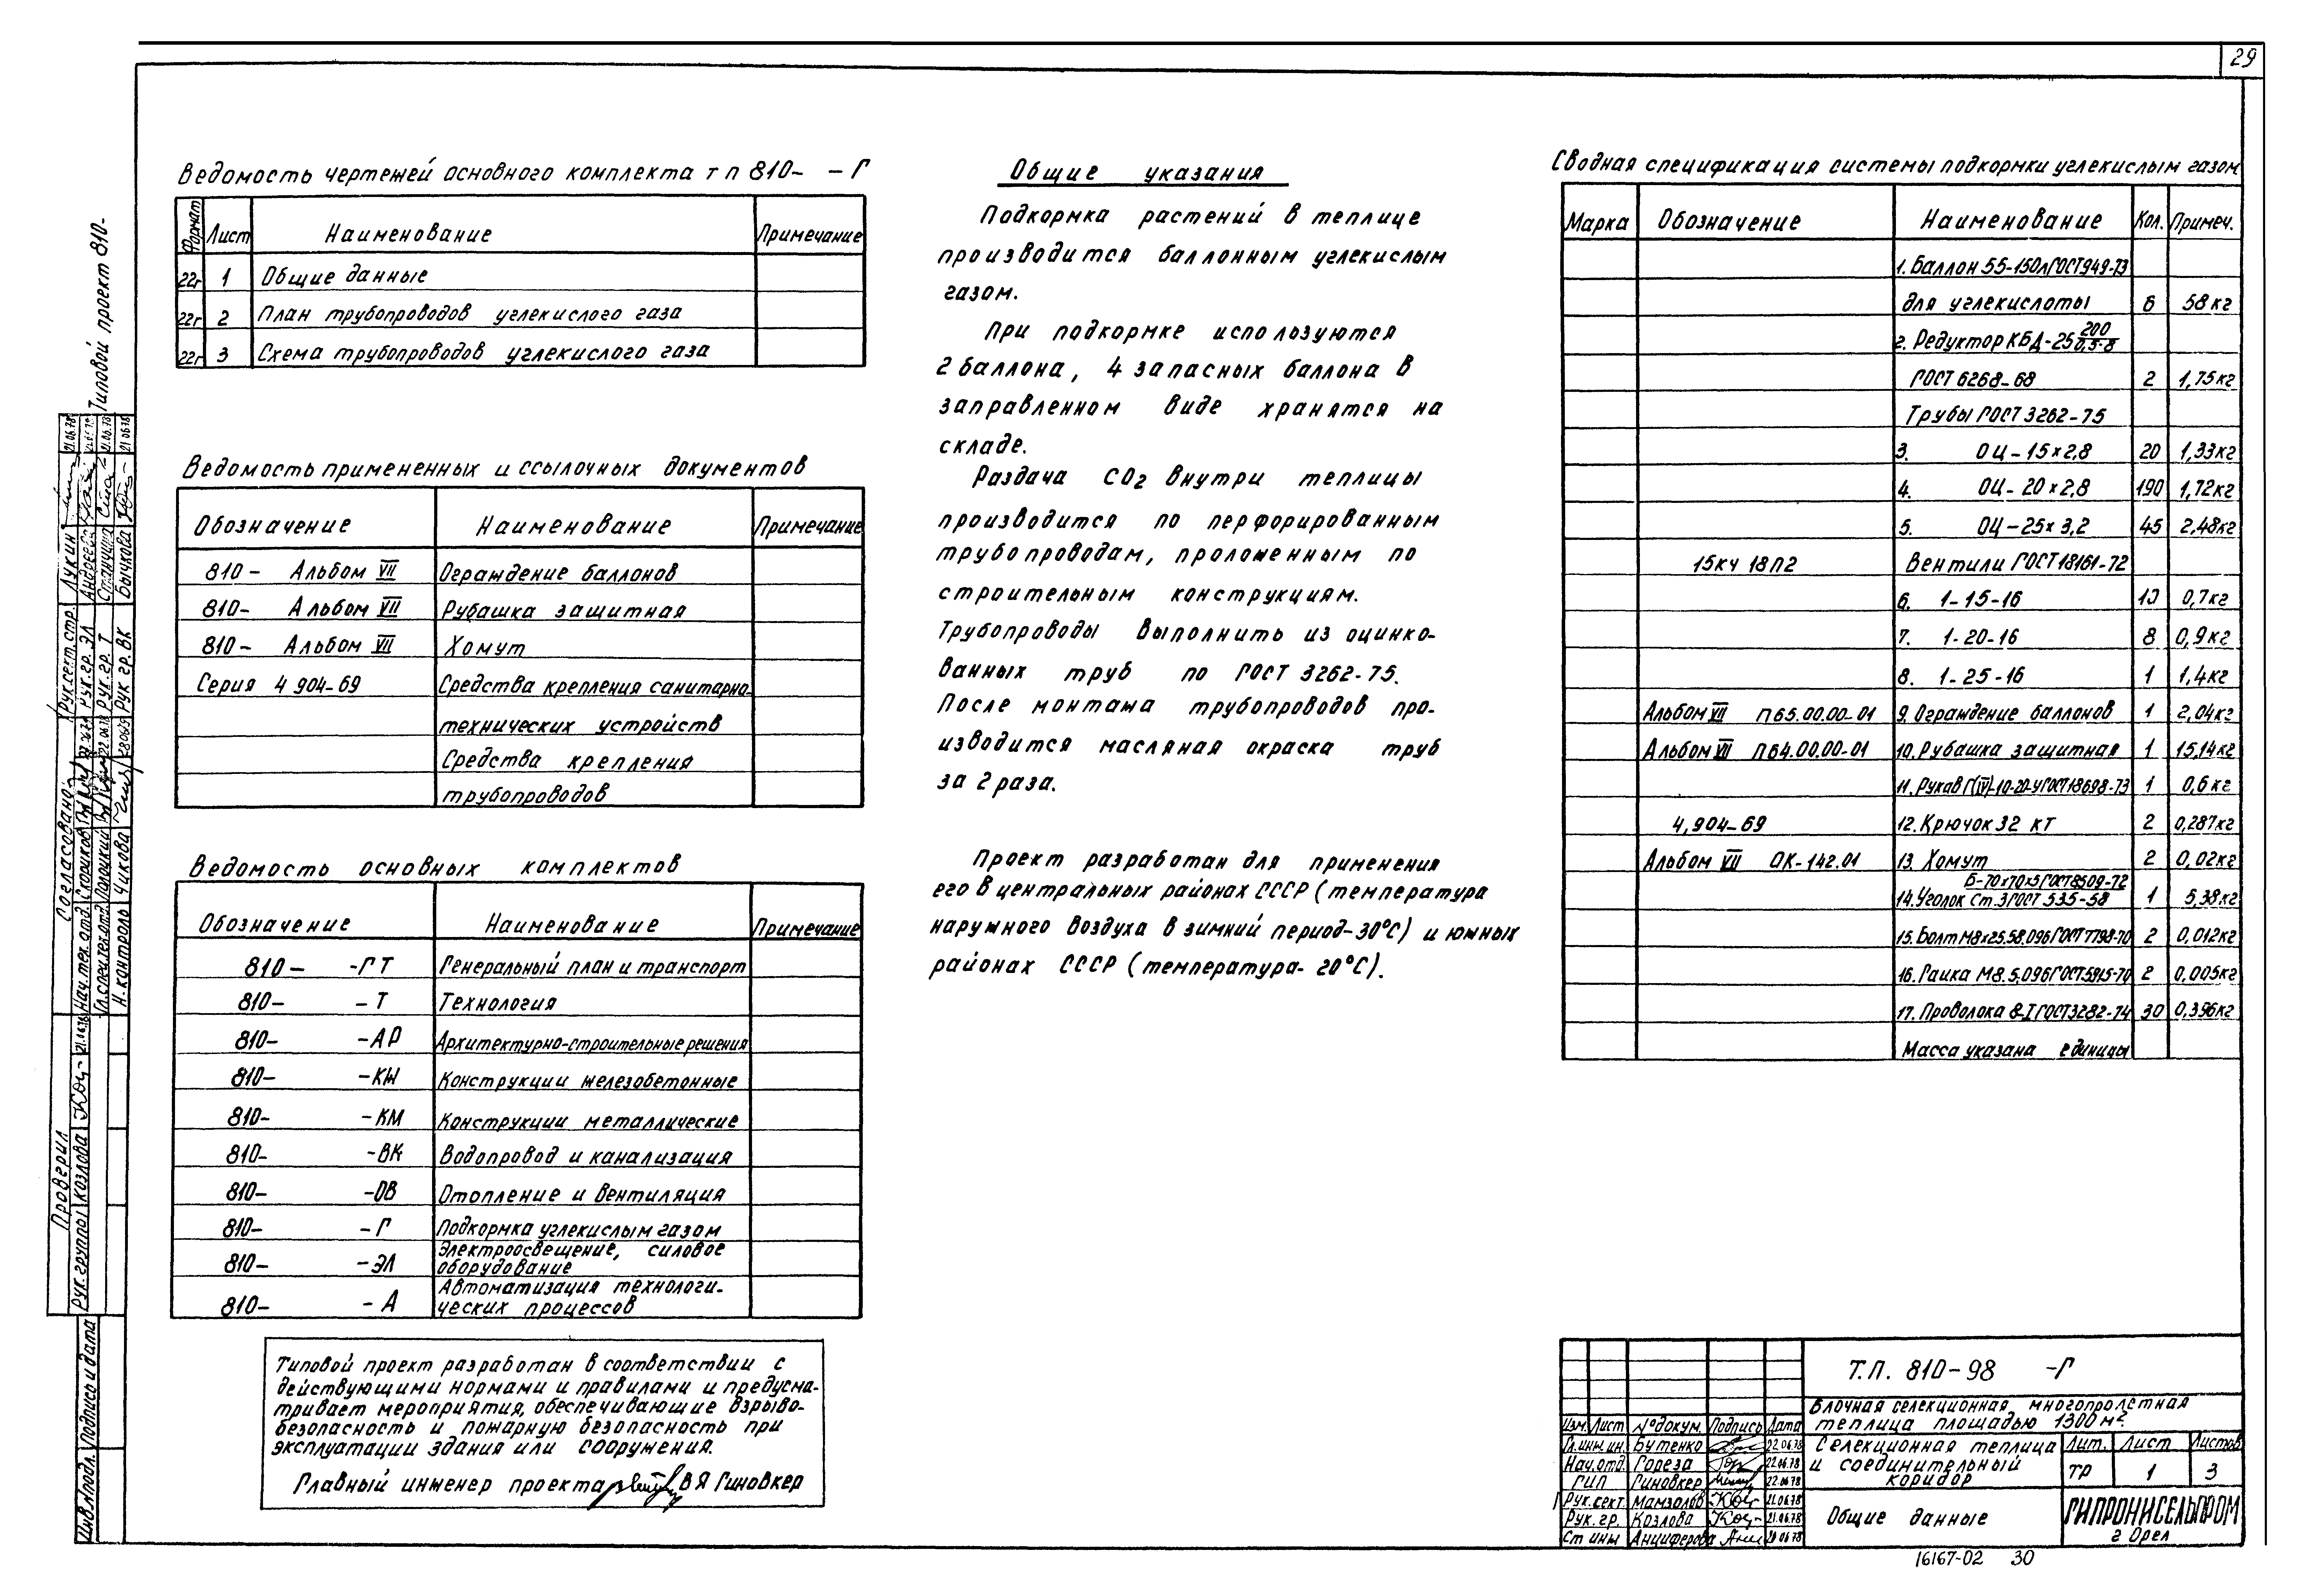 29
Ведомость чертежей основного комплекта т п 810- -Г
Формат Лист Наименование Примечание
22г 1 Общие данные
22г 2 План трубопроводов углекислого газа
22г 3 Схема трубопроводов углекислого газа
Ведомость примененных и ссылочных документов
Обозначение Наименование Примечание
810- Альбом VII Ограждение баллонов
810- Альбом VII Рубашка защитная
810- Альбом VII Хомут
Серия 4 904-69 Средства крепления санитарно-
технических устройств
Средства крепления
трубопроводов
Ведомость основных комплектов
Обозначение Наименование Примечание
810- -ГТ Генеральный план и транспорт
810- -Т Технология
810- -АР Архитектурно-строительные решения
810- -КЖ Конструкции железобетонные
810- -КМ Конструкции металлические
810- -ВК Водопровод и канализация
810- -ОВ Отопление и вентиляция
810- -Г Подкормка углекислым газом
810- -ЭЛ Электроосвещение, силовое
оборудование
810- -А Автоматизация технологи-
ческих процессов
Типовой проект разработан в соответствии с
действующими нормами и правилами и предусма-
тривает мероприятия, обеспечивающие взрыво-
безопасность и пожарную безопасность при
эксплуатации здания или сооружения.
Главный инженер проекта В Я Гиновкер
Общие указания
Подкормка растений в теплице
производится баллонным углекислым
газом.
При подкормке используются
2 баллона, 4 запасных баллона в
заправленном виде хранятся на
складе.
Раздача CO2 внутри теплицы
производится по перфорированным
трубопроводам, проложенным по
строительным конструкциям.
Трубопроводы выполнить из оцинко-
ванных труб по ГОСТ 3262-75.
После монтажа трубопроводов про-
изводится масляная окраска труб
за 2 раза.
Проект разработан для применения
его в центральных районах СССР (температура
наружного воздуха в зимний период-30°С) и южных
районах СССР (температура- 20°С).
Сводная спецификация системы подкормки углекислым газом
Марка Обозначение Наименование Кол. Примеч.
1. Баллон 55-150л ГОСТ 949-73
для углекислоты 6 58кг
2. Редуктор КБД-25 200/0,5-8
ГОСТ 6268-68 2 1,75кг
Трубы ГОСТ 3262-75
3. ОЦ-15х2,8 20 1,33кг
4. ОЦ-20х2,8 190 1,72кг
5. ОЦ-25х3,2 45 2,48кг
15кч 18п2 Вентили ГОСТ 18161-72
6. 1-15-16 10 0,7кг
7. 1-20-16 8 0,9кг
8. 1-25-16 1 1,4кг
Альбом VII П65.00.00-01 9. Ограждение баллонов 1 2,04кг
Альбом VII П64.00.00-01 10. Рубашка защитная 1 15,14кг
11. Рукав Г(IV)-10-20-У ГОСТ 18698-73 1 0,6кг
4,904-69 12. Крючок 32 кт 2 0,287кг
Альбом VII ОК-142.01 13. Хомут 2 0,02кг
Б-70х70х5 ГОСТ 8509-72
14. Уголок Ст.3 ГОСТ 535-58 1 5,38кг
15. Болт М8х25.58.096 ГОСТ 7798-70 2 0,012кг
16. Гайка М8.5.096 ГОСТ 5915-70 2 0,005кг
17. Проволока 8-I ГОСТ 3282-74 30 0,396кг
Масса указана единицы
Т.П. 810-98 -Г
Блочная селекционная многопролетная
теплица площадью 1300 м2.
Изм. Лист №докум. Подпись Дата
Гл.инж.ин. Бутенко 22.06.78
Нач.отд. Гореза 22.06.78
ГИП Гиновкер 22.06.78
Рук.сект. Мамзолов 21.06.78
Рук.гр. Козлова 21.06.78
Ст инж Анциферова 20.06.78
Селекционная теплица
и соединительный
коридор
Лит. Лист Листов
ТР 1 3
Общие данные
ГИПРОНИСЕЛЬПРОМ
г Орел
16167-02 30
Типовой проект 810-
Согласовано:
Рук.сект.стр. Лукин 21.06.78
Рук.гр. ЭЛ Андреева
Рук.гр. Т
Рук гр. ВК Бычкова 21 06.78
Нач.тех.отд. Скориков
Гл.спец.тех.отд. 22.06.78
Н.контроль Чикова 28.06.78
Проверил
Рук.группы Козлова 21.06.78
Инв.№подл. Подпись и дата